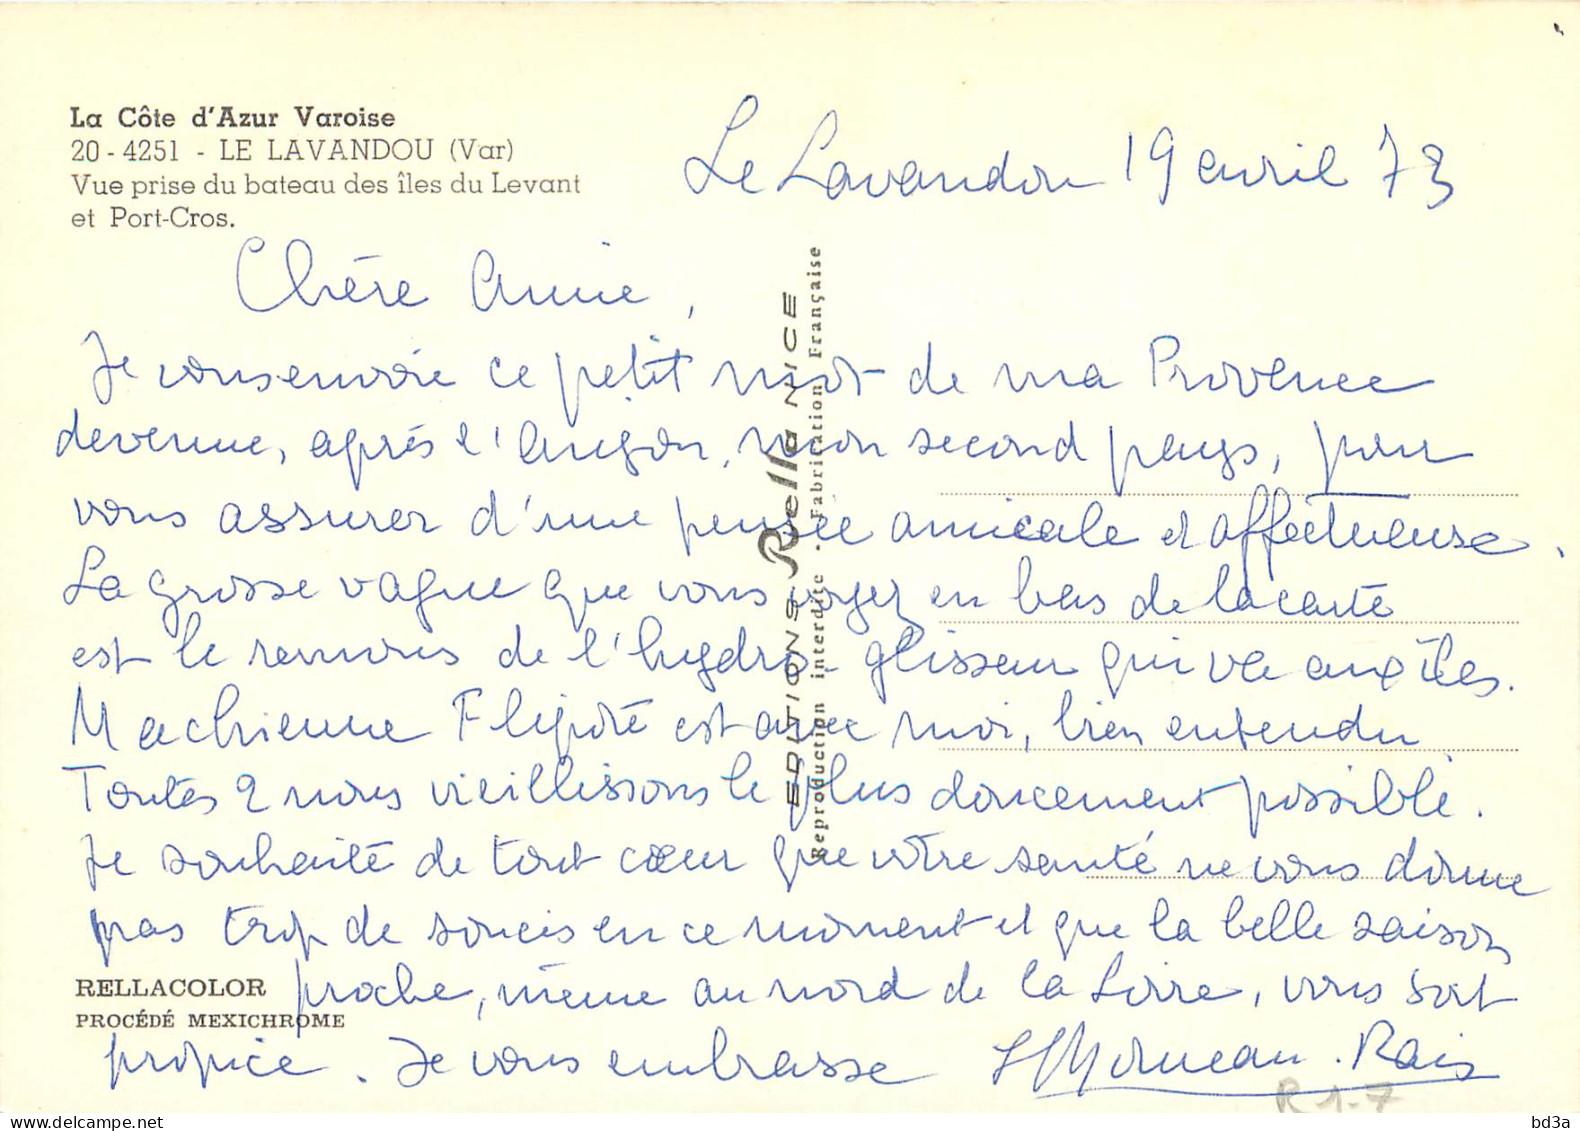 La Côte d'Azur Varoise
20 - 4251 - LE LAVANDOU (Var)
Vue prise du bateau des îles du Levant
et Port-Cros.
Le Lavandou 19 avril 73
Chère Amie,
Je vous envoie ce petit mot de ma Provence
devenue, après l'Anjou, mon second pays, pour
vous assurer d'une pensée amicale et affectueuse.
La grosse vague que vous voyez en bas de la carte
est le remous de l'hydro-glisseur qui va aux îles.
Ma chienne Flipote est avec moi, bien entendu
Toutes 2 nous vieillissons le plus doucement possible.
Je souhaite de tout cœur que votre santé ne vous donne
pas trop de soucis en ce moment et que la belle saison
proche, même au nord de la Loire, vous soit
propice. Je vous embrasse Morneau-Rais
EDITIONS Rella NICE
Reproduction interdite - Fabrication Française
RELLACOLOR
PROCÉDÉ MEXICHROME
R 1-7
bd3a